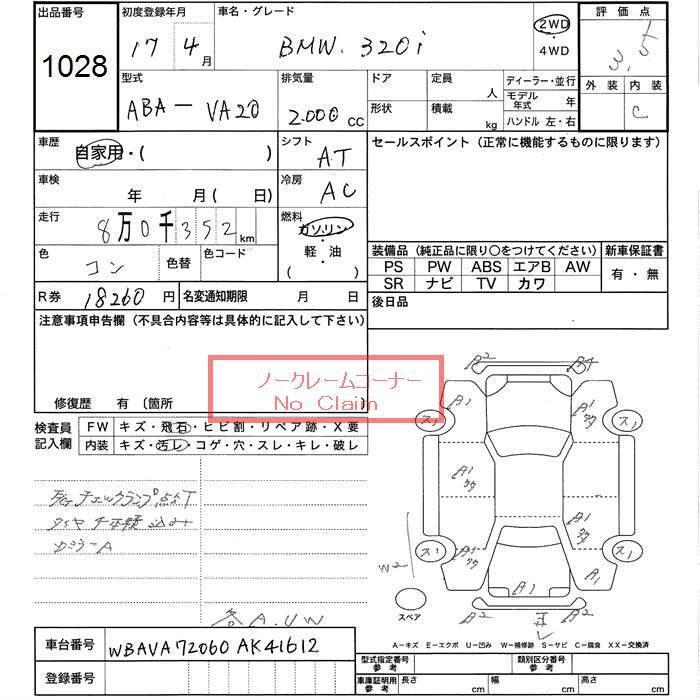 出品番号
1028
初度登録年月
17 4月
車名・グレード
BMW. 320i
2WD
4WD
評価点
3.5
外装 内装
C
型式
ABA-VA20
排気量
2.000 cc
ドア
形状
定員 人
積載 kg
ディーラー・並行
モデル年式 年
ハンドル 左・右
車歴
自家用・( )
シフト
AT
車検 年 月 ( 日)
冷房
AC
走行
8万0千352km
燃料
ガソリン
軽・油
( )
色
コン
色替
色コード
R券 18260円
名変通知期限 月 日
セールスポイント (正常に機能するものに限ります)
装備品 (純正品に限り○をつけてください)
PS PW ABS エアB AW
SR ナビ TV カワ
新車保証書
有・無
後日品
注意事項申告欄 (不具合内容等は具体的に記入して下さい)
ノークレームコーナー
No Claim
修復歴 有 〔箇所
検査員記入欄
FW キズ・飛石・ヒビ割・リペア跡・X要
内装 キズ・汚レ・コゲ・穴・スレ・キレ・破レ
チェックランプ点灯
タイヤ
A.UW
A2
A4
A1
A1
キズ
ス1
ス1
A1
キズ
A1
キズ
A1
キズ
ス1
ス1
W2
A1
A1
A2
A2
スペア
A-キズ E-エクボ U-凹み W-補修跡 S-サビ C-腐食 XX-交換済
車台番号
WBAVA72060AK41612
登録番号
型式指定番号 参考
類別区分番号 参考
車庫証明用 参考
長さ cm
幅 cm
高さ cm